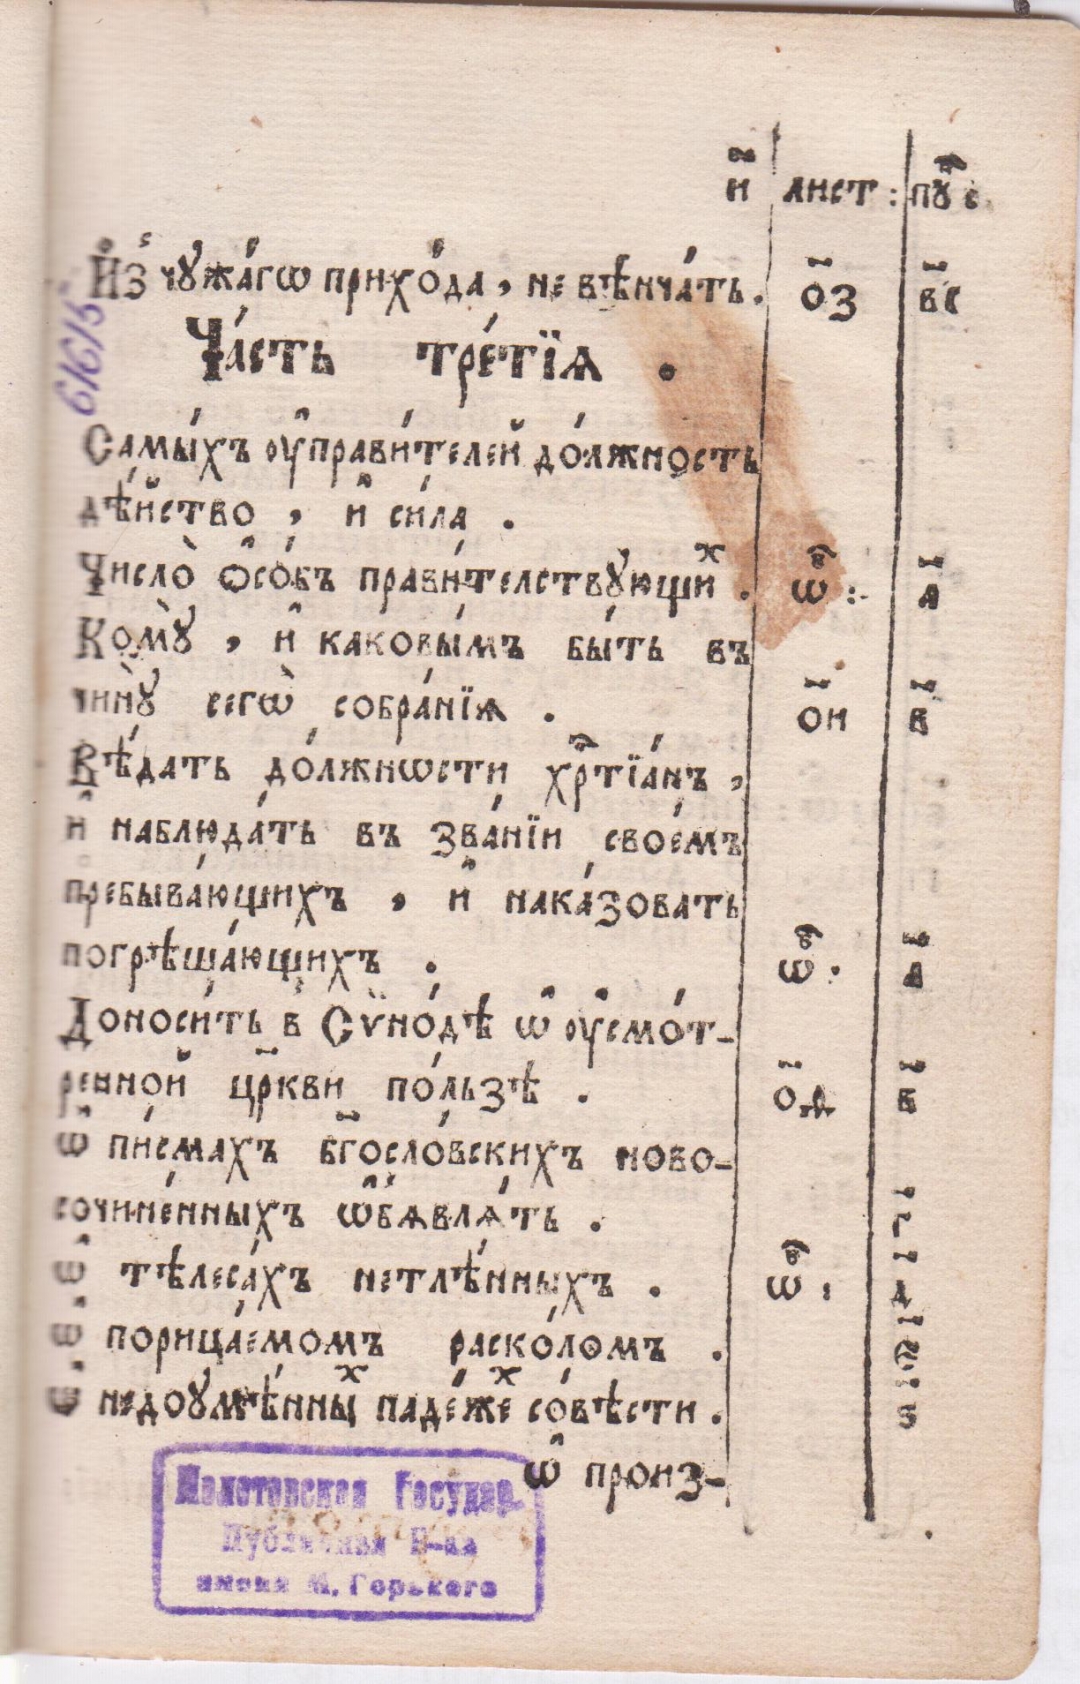 и҃ лист : пꙋⷩ҇
И҆з̾ чꙋжа́гѡ прихо́да , не вѣнча́ть . о҃з в҃і
Ча́сть тре́тїѧ .
Самы́хъ ᲂу҆прави́телей до́лжность
дѣ́йство , и҆ си́ла .
Число̀ ѻ҆со́бъ прави́телствꙋющиⷯ . ѡⷡ : а҃
Комꙋ̀ , и҆ каковы́мъ бы́ть въ
чинꙋ̀ сегѡ̀ собра́нїѧ . о҃и в҃
Вѣ́дать до́лжнѡсти хр҇тїа́нъ ,
и҆ наблюда́ть въ зва́нїи свое́мъ
пребыва́ющихъ , и҆ нака́зовать
погрѣша́ющихъ . ѡⷡ : д҃
Доноси́ть в̾ Сѷно́дѣ ѡ҆ ᲂу҆смо́т-
ренной цр҃кви по́льзѣ . в҃
ѡ҆ пи́смахъ бг҃осло́вскихъ ново-
сочине́нныхъ ѡ҆б̾ѧвлѧ́ть . г҃
ѡ҆ тѣлеса́хъ нетлѣ́нныхъ . ѡⷡ : д҃
ѡ҆ порица́емомъ раско́ломъ .
ѡ҆ недоꙋмѣ́нныⷯ паде́жеⷯ со́вѣсти . ѕ҃
ѡ҆ произ-
Государ.
Публичная Б-ка
имени М. Горького